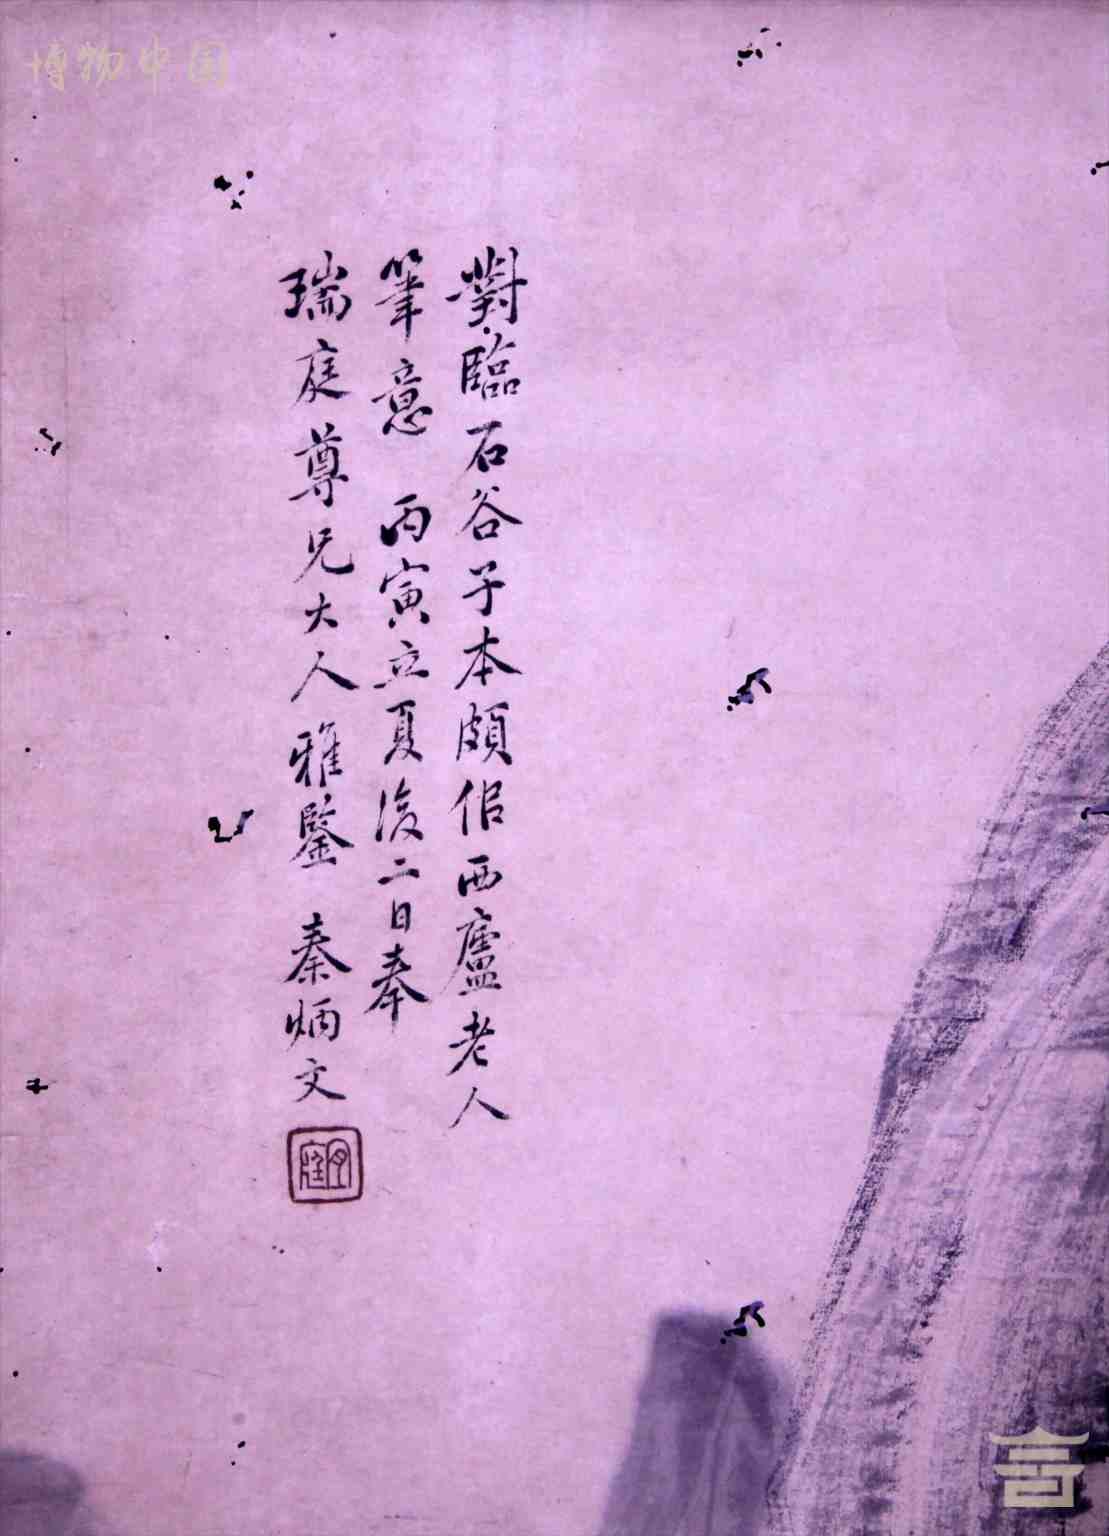 博物中国
對臨石谷子本頗佀西廬老人
筆意 丙寅立夏後二日奉
瑞庭尊兄大人雅鑒 秦炳文